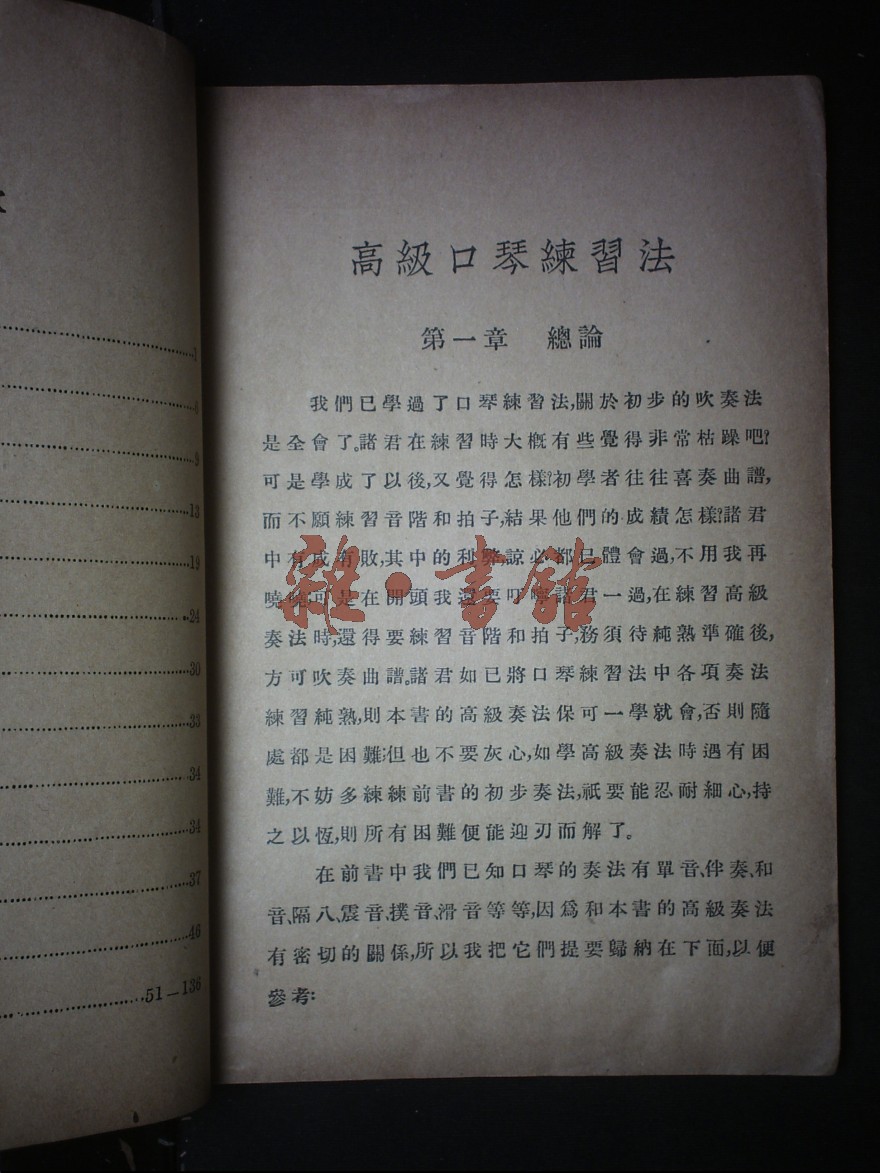 1
6
9
13
19
24
30
33
34
34
37
46
51—136
高級口琴練習法
第一章 總論
我們已學過了口琴練習法,關於初步的吹奏法
是全會了。諸君在練習時大概有些覺得非常枯躁吧?
可是學成了以後,又覺得怎樣?初學者往往喜奏曲譜,
而不願練習音階和拍子,結果他們的成績怎樣?諸君
中有成有敗,其中的利弊,諒必都已體會過,不用我再
嘵嘵;可是在開頭我還要叮嚀諸君一過,在練習高級
奏法時,還得要練習音階和拍子,務須待純熟準確後,
方可吹奏曲譜。諸君如已將口琴練習法中各項奏法
練習純熟,則本書的高級奏法保可一學就會,否則隨
處都是困難;但也不要灰心,如學高級奏法時遇有困
難,不妨多練練前書的初步奏法,祇要能忍耐細心,持
之以恆,則所有困難便能迎刃而解了。
在前書中我們已知口琴的奏法有單音、伴奏、和
音、隔八、震音、撲音、滑音等等,因爲和本書的高級奏法
有密切的關係,所以我把它們提要歸納在下面,以便
參考:
雜·書館